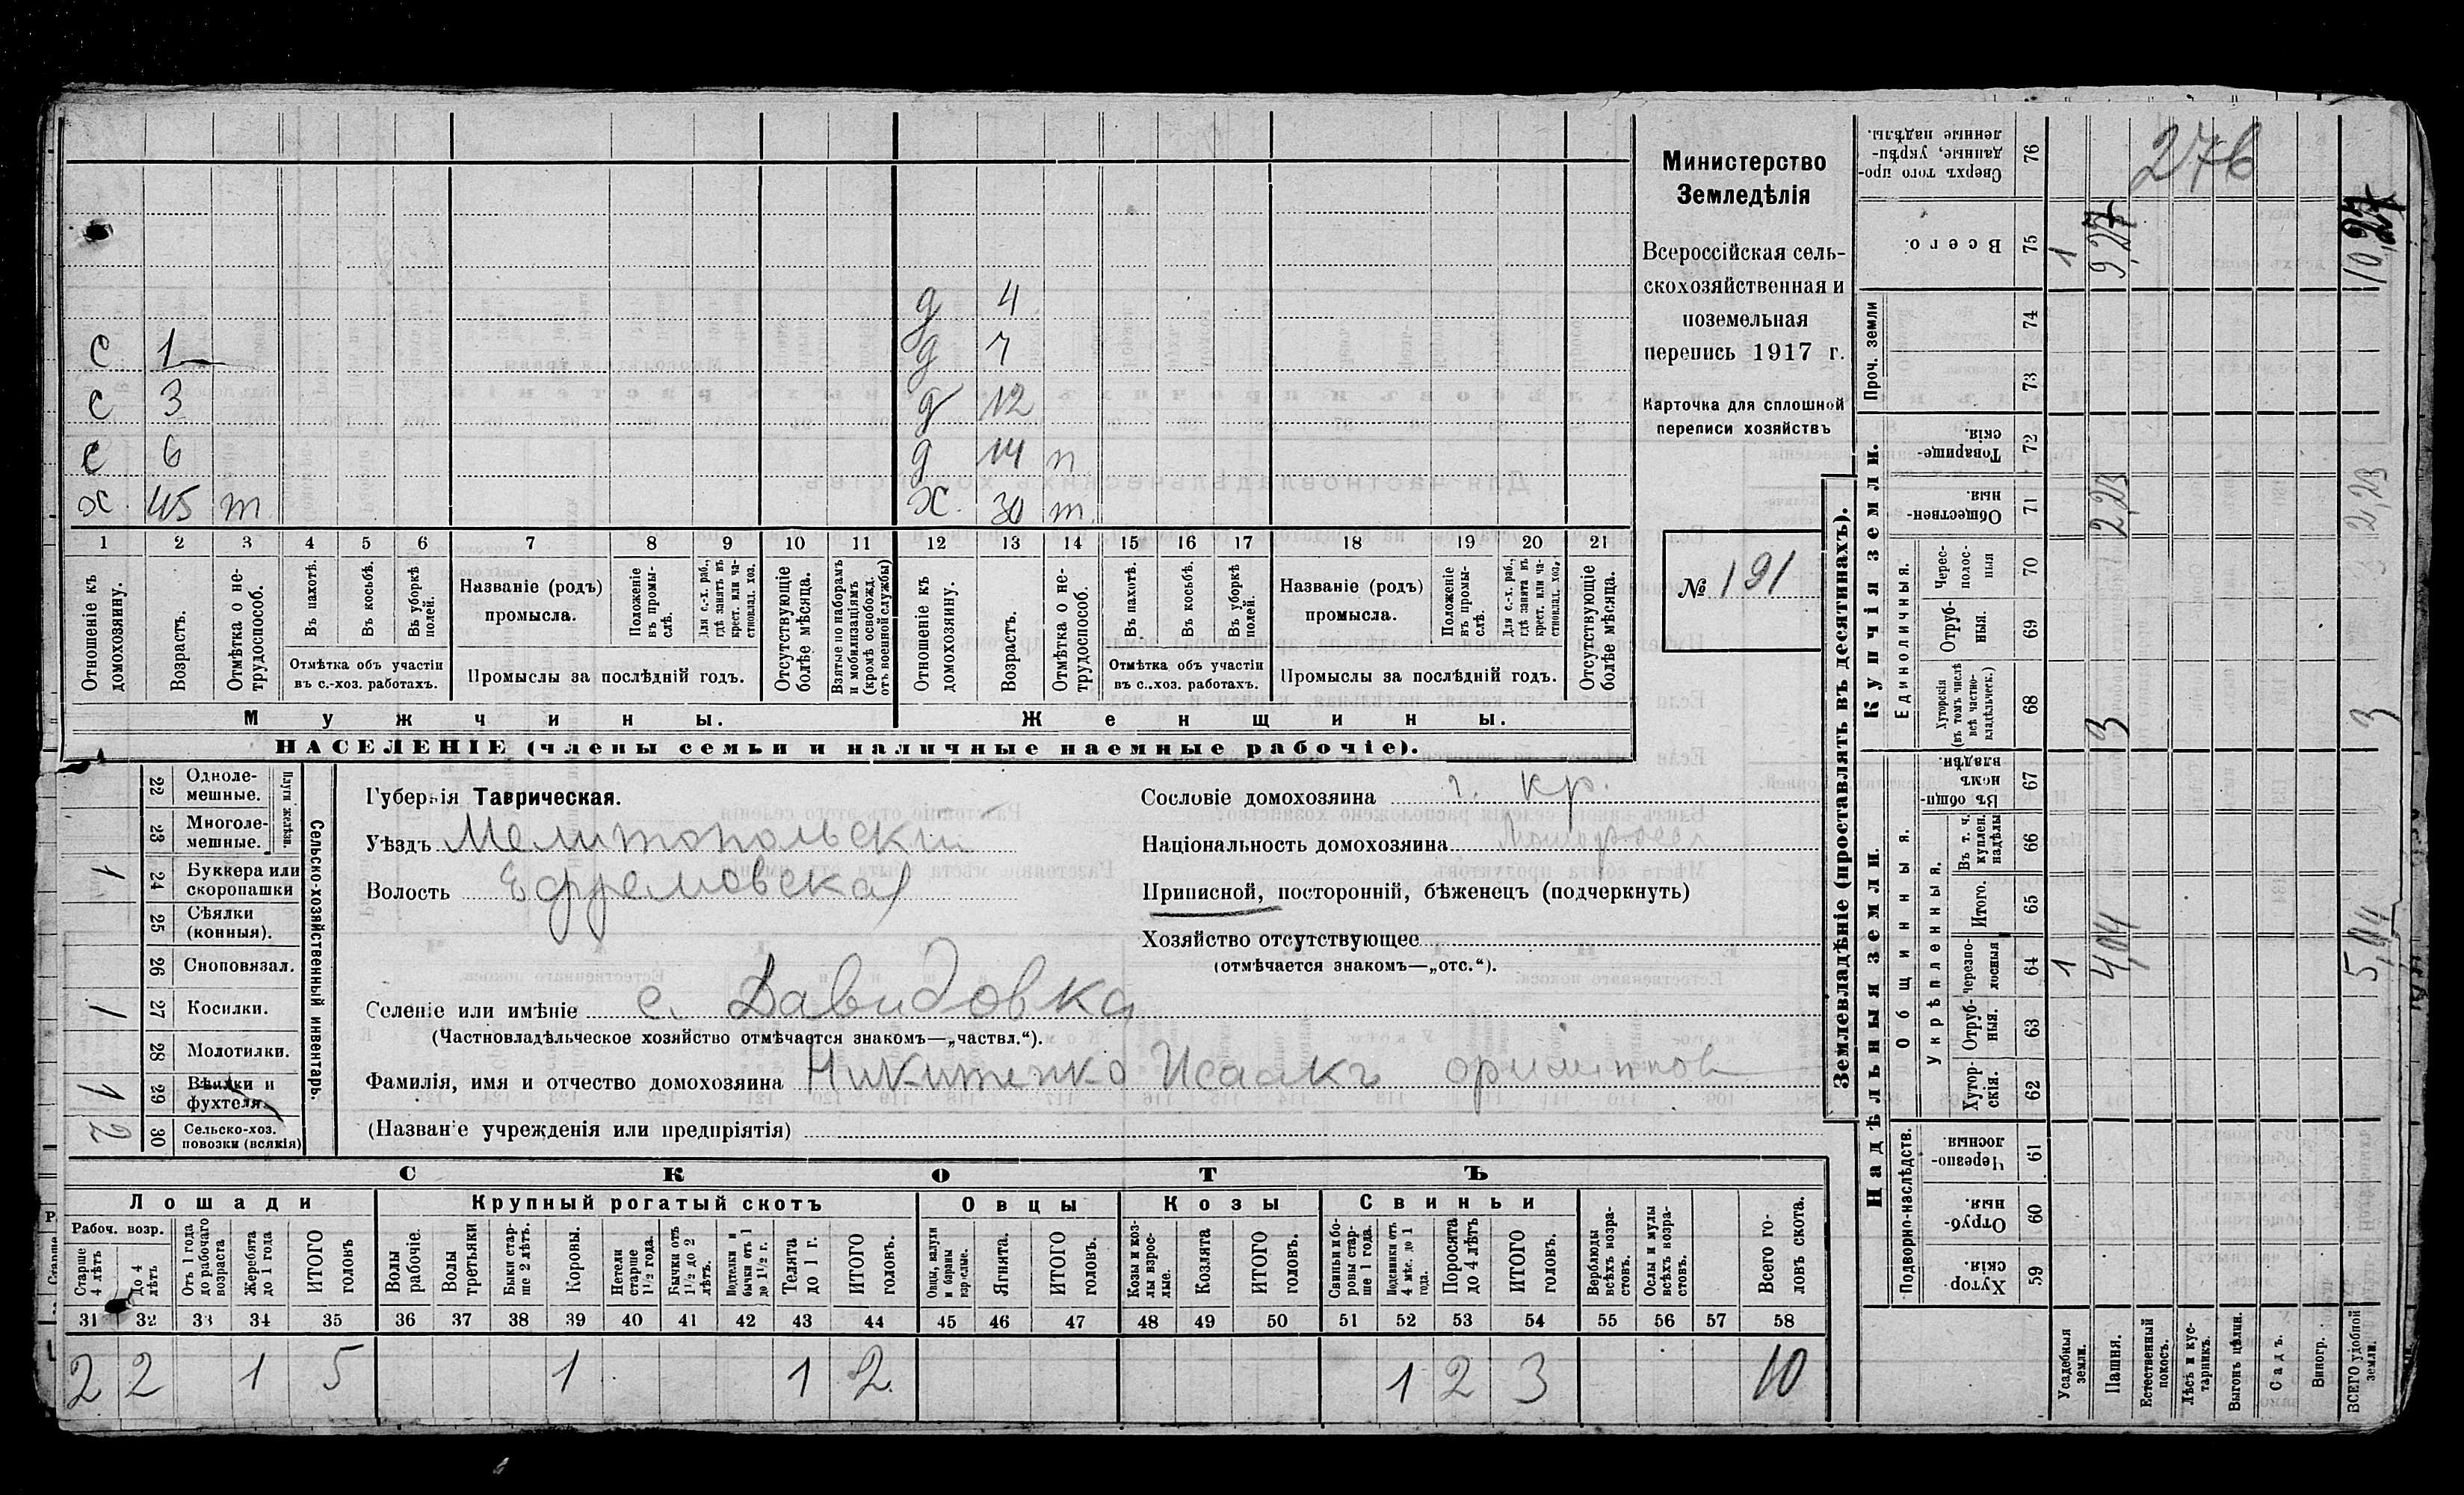 276
Министерство
Земледѣлія
Всероссійская сель-
скохозяйственная и
поземельная
перепись 1917 г.
Карточка для сплошной
переписи хозяйствъ
№ 191
д 4
с 1 д 7
с 3 д 12
с 6 д 14 п
х 45 т х. 30 т
1 2 3 4 5 6 7 8 9 10 11 12 13 14 15 16 17 18 19 20 21
Отношеніе къ домохозяину.
Возрастъ.
Отмѣтка о не-трудоспособ.
Въ пахотѣ.
Въ косьбѣ.
Въ уборкѣ полей.
Отмѣтка объ участіи
въ с.-хоз. работахъ.
Названіе (родъ)
промысла.
Положеніе въ промы-слѣ.
Для с.-х. раб., гдѣ занятъ въ крест. или ча-стновлад. хоз.
Промыслы за послѣдній годъ.
Отсутствующіе болѣе мѣсяца.
Взятые по наборамъ и мобилизаціямъ (кромѣ освобожд. отъ военной службы)
Отношеніе къ домохозяину.
Возрастъ.
Отмѣтка о не-трудоспособ.
Въ пахотѣ.
Въ косьбѣ.
Въ уборкѣ полей.
Отмѣтка объ участіи
въ с.-хоз. работахъ.
Названіе (родъ)
промысла.
Положеніе въ промы-слѣ.
Для с.-х. раб., гдѣ занята въ крест. или ча-стновлад. хоз.
Промыслы за послѣдній годъ.
Отсутствующіе болѣе мѣсяца.
Мужчины. Женщины.
НАСЕЛЕНІЕ (члены семьи и наличные наемные рабочіе).
Сельско-хозяйственный инвентарь.
Плуги желѣзн.
22 Одноле-мешные.
23 Многоле-мешные.
1 24 Буккера или скоропашки
25 Сѣялки (конныя).
26 Сноповязал.
1 27 Косилки.
28 Молотилки.
1 29 Вѣялки и фухтеля.
2 30 Сельско-хоз. повозки (всякія)
Губернія Таврическая.
Уѣздъ Мелитопольский
Волость Ефремовская
Сословіе домохозяина г. кр.
Національность домохозяина Малоросс
Приписной, посторонній, бѣженецъ (подчеркнуть)
Хозяйство отсутствующее
(отмѣчается знакомъ—„отс.“).
Селеніе или имѣніе с. Давидовка
(Частновладѣльческое хозяйство отмѣчается знакомъ—„частвл.“).
Фамилія, имя и отчество домохозяина Никитенко Исаакъ
(Названіе учрежденія или предпріятія)
СКОТЪ
Лошади Крупный рогатый скотъ Овцы Козы Свиньи
Рабоч. возр.
Старше 4 лѣтъ
до 4 лѣтъ
Отъ 1 года до рабочаго возраста
Жеребята до 1 года
ИТОГО головъ
Волы рабочіе.
Волы третьяки
Быки стар-ше 2 лѣтъ.
Коровы.
Нетели старше 1 1/2 года.
Бычки отъ 1 1/2 до 2 лѣтъ.
Подтелки и бычки отъ 1 до 1 1/2 г.
Телята до 1 г.
ИТОГО головъ.
Овцы, валухи и бараны взрослые.
Ягнята.
ИТОГО головъ.
Козы и коз-лы взрос-лые.
Козлята
ИТОГО головъ.
Свиньи и бо-ровы стар-ше 1 года.
Подсвинки отъ 4 мѣс. до 1 года.
Поросята до 4 лѣтъ
ИТОГО головъ.
Верблюды всѣхъ возра-стовъ.
Ослы и мулы всѣхъ возра-стовъ.
Всего го-ловъ скота.
31 32 33 34 35 36 37 38 39 40 41 42 43 44 45 46 47 48 49 50 51 52 53 54 55 56 57 58
2 2 1 5 1 1 2 1 2 3 10
Землевладѣніе (проставлять въ десятинахъ).
Надѣльныя земли. Купчія земли. Проч. земли
Подворно-наслѣдств.
Общинныя.
Укрѣпленныя.
Единоличныя.
Хутор-скія. 59
Отруб-ныя. 60
Черезпо-лосныя. 61
Хутор-скія. 62
Отруб-ныя. 63
Черезпо-лосныя 64 1 4,04 5,04
Итого. 65
Въ т. ч. куплен. надѣлы 66
Въ общин-номъ владѣн. 67
Хуторскія (въ томъ числѣ всѣ частно-владѣльческ.) 68 3 3
Отруб-ныя. 69
Черес-полос-ныя 70
Обществен-ныя. 71 2,23 2,23
Товарище-скія. 72
73
74
Всего. 75 1 9,27 10,27
Сверхъ того про-данные, укрѣп-ленные надѣлы. 76
Усадебныя земли.
Пашня.
Естественный покосъ.
Лѣсъ и кус-тарникъ.
Выгонъ цѣлин.
Садъ.
Виногр.
ВСЕГО удобной земли.